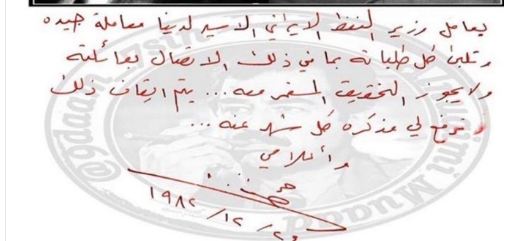 يعامل وزير النفط الايراني الاسير لدينا معاملة جيده
وتلبى كل طلباته بما في ذلك الاتصال بعائلته
ولا يجوز التحقيق المستمر معه... يتم ايقاف ذلك
وترفع لي مذكره كل شهر عنه...
واعلامي
١٩٨٢/١٢/